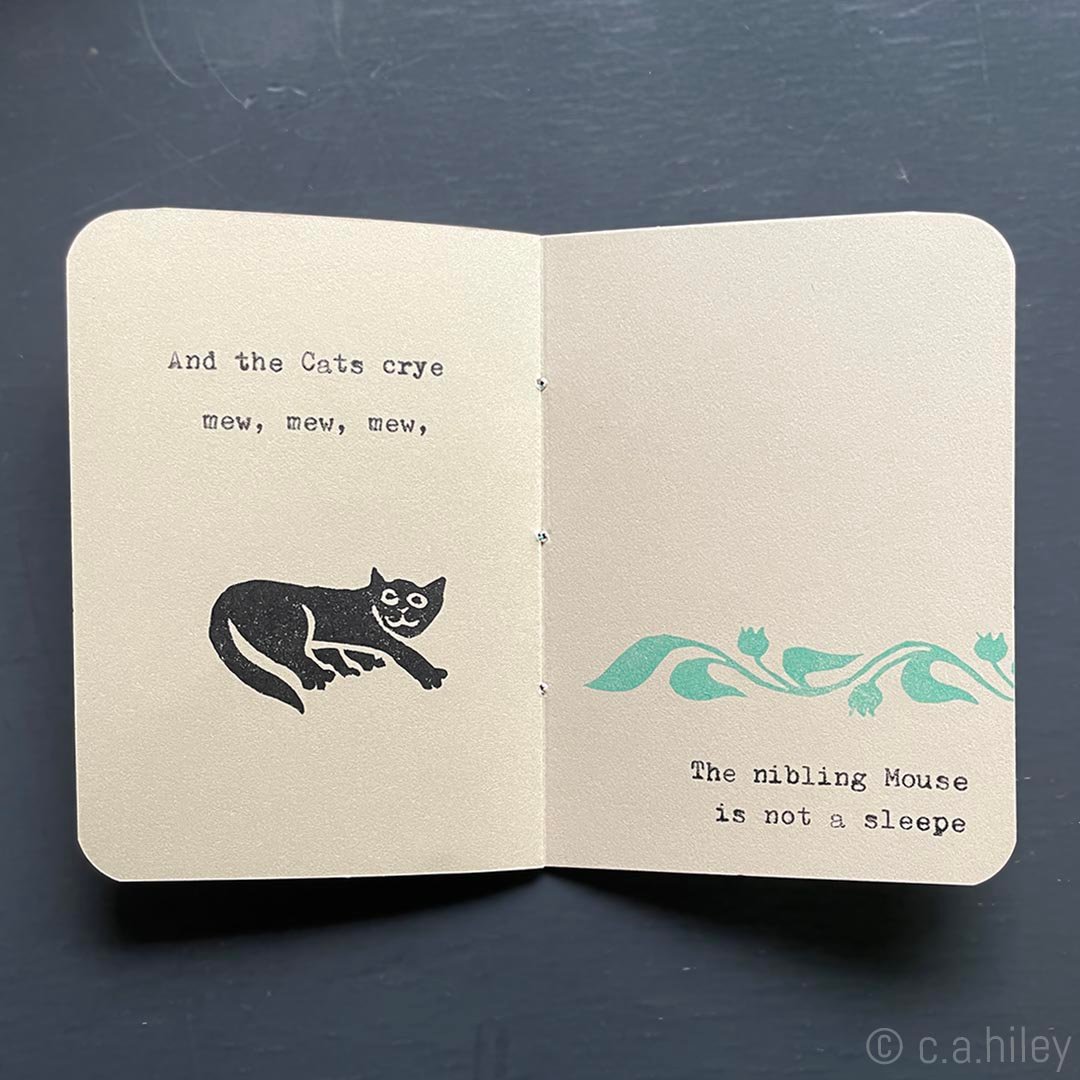 And the Cats crye
mew, mew, mew,
The nibling Mouse
is not a sleepe
© c.a.hiley